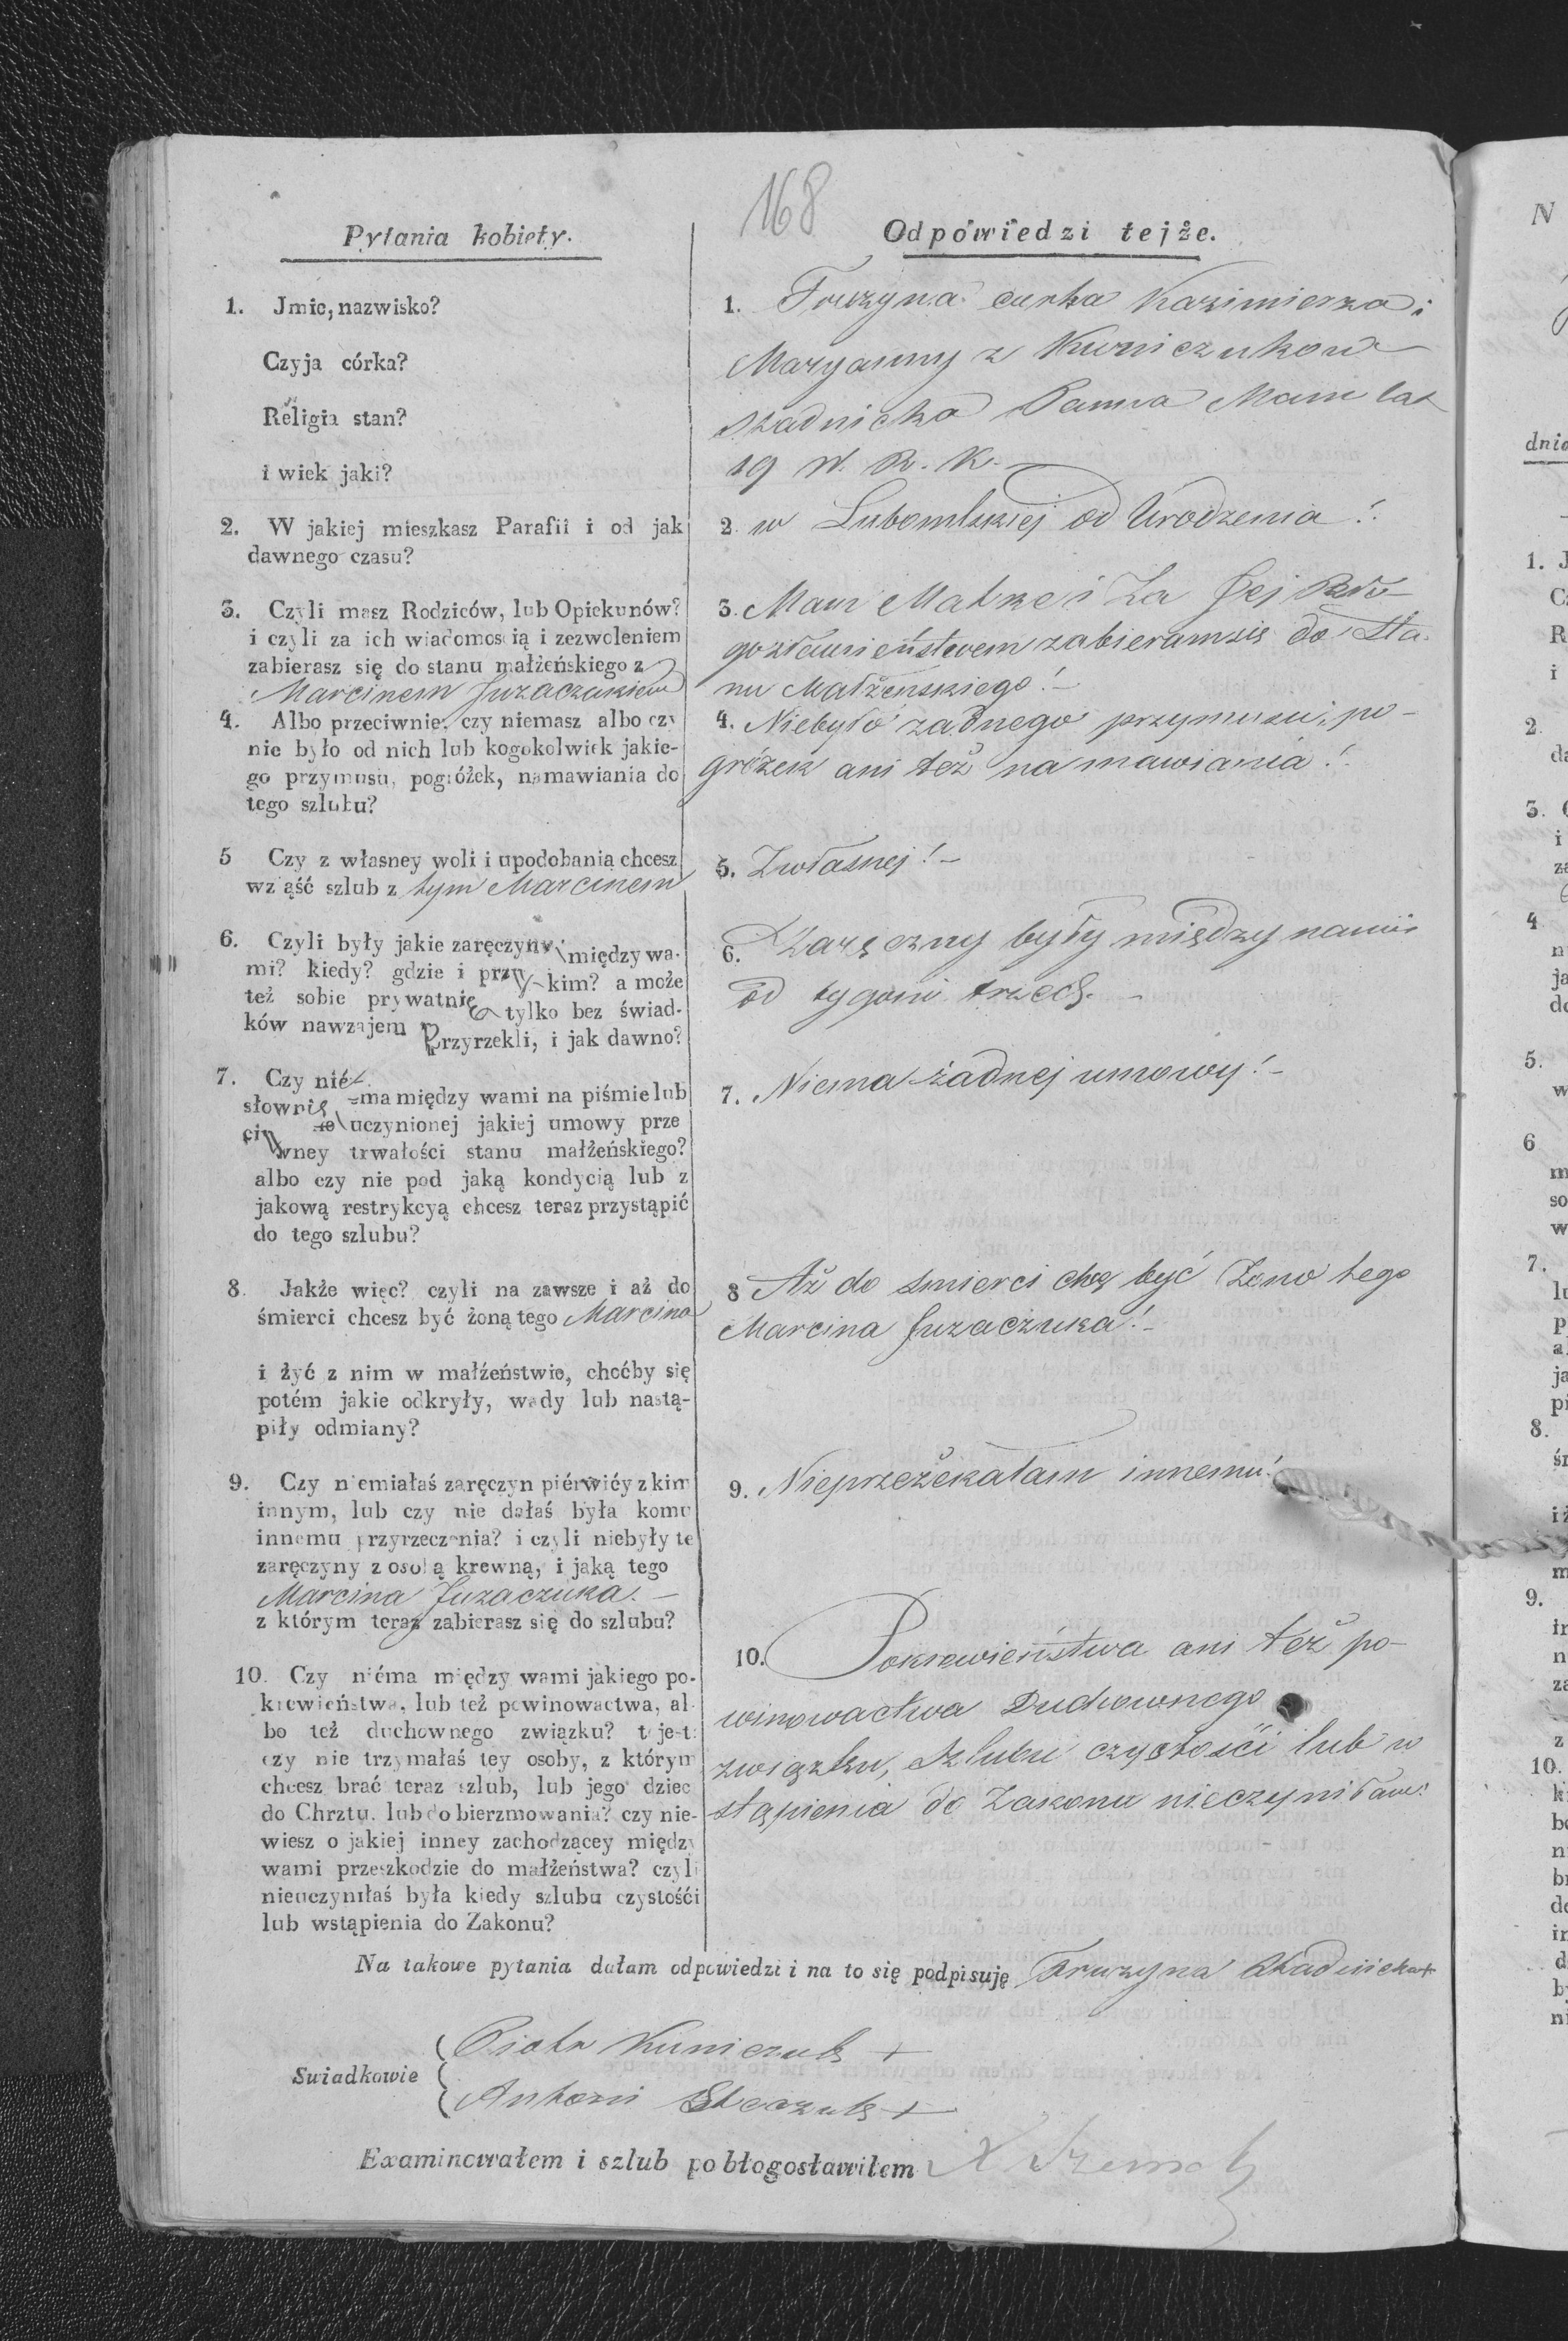 168
Pytania kobiety.
1. Jmie, nazwisko?
Czyja córka?
Religia stan?
i wiek jaki?
2. W jakiej mieszkasz Parafii i od jak
dawnego czasu?
3. Czyli masz Rodziców, lub Opiekunów?
i czyli za ich wiadomością i zezwoleniem
zabierasz się do stanu małżeńskiego z
Marcinem Juzaczukiem
4. Albo przeciwnie, czy niemasz albo czy
nie było od nich lub kogokolwiek jakie-
go przymusu, pogróżek, namawiania do
tego szlubu?
5 Czy z własney woli i upodobania chcesz
wziąść szlub z tym Marcinem
6. Czyli były jakie zaręczyny między wa-
mi? kiedy? gdzie i przy kim? a może
też sobie prywatnie tylko bez świad-
ków nawzajem przyrzekli, i jak dawno?
7. Czy nié-
ma między wami na piśmie lub
słownie uczynionej jakiej umowy prze
ciwney trwałości stanu małżeńskiego?
albo czy nie pod jaką kondycią lub z
jakową restrykcyą chcesz teraz przystąpić
do tego szlubu?
8. Jakże więc? czyli na zawsze i aż do
śmierci chcesz być żoną tego Marcina
i żyć z nim w małżeństwie, choćby się
potém jakie odkryły, wady lub nastą-
piły odmiany?
9. Czy niemiałaś zaręczyn piérwiéy z kim
innym, lub czy nie dałaś była komu
innemu przyrzeczenia? i czyli niebyły te
zaręczyny z osobą krewną, i jaką tego
Marcina Juzaczuka. —
z którym teraz zabierasz się do szlubu?
10. Czy niéma między wami jakiego po-
krewieństwa, lub też powinowactwa, al-
bo też duchownego związku? to jest:
czy nie trzymałaś tey osoby, z którym
chcesz brać teraz szlub, lub jego dziec
do Chrztu, lub do bierzmowania? czy nie-
wiesz o jakiej inney zachodzącey między
wami przeszkodzie do małżeństwa? czyli
nieuczyniłaś była kiedy szlubu czystośći
lub wstąpienia do Zakonu?
Odpowiedzi tejże.
1. Fruzyna curka Kazimierza i
Maryanny z Kuniczukow
Panna Mam lat
19 W. R. K. —
2. w Lubomlskiej od Urodzenia!
3. Mam Matkę i Za Jej Bło-
gozławieństwem zabieram sie do Sta-
nu Małżenskiego! —
4. Niebyło zadnego przymusu, po-
gróżek ani też na mawiania!
5. Zwłasnej! —
6. Zaręczny były między nami
od tygoni trzech. —
7. Niema żadnej umowy! —
8 Aż do smierci chcę być Zono tego
Marcina Juzaczuka! —
9. Nieprzeżekałam innemu!
10. Pokrewieństwa ani też po-
winowactwa Duchownego
związku, Szlubu czystości lub w
stąpienia do Zakonu nieczyniłam!
Na takowe pytania dałam odpowiedzi i na to się podpisuję Fruzyna
Swiadkowie
Piotr Kuniczuk +
Antoni +
Examinowałem i szlub pobłogosławiłem X
N
dnia
1. J
C
R
i
2.
da
3.
i
4
5.
w
6
m
so
w
7.
8.
9.
10.